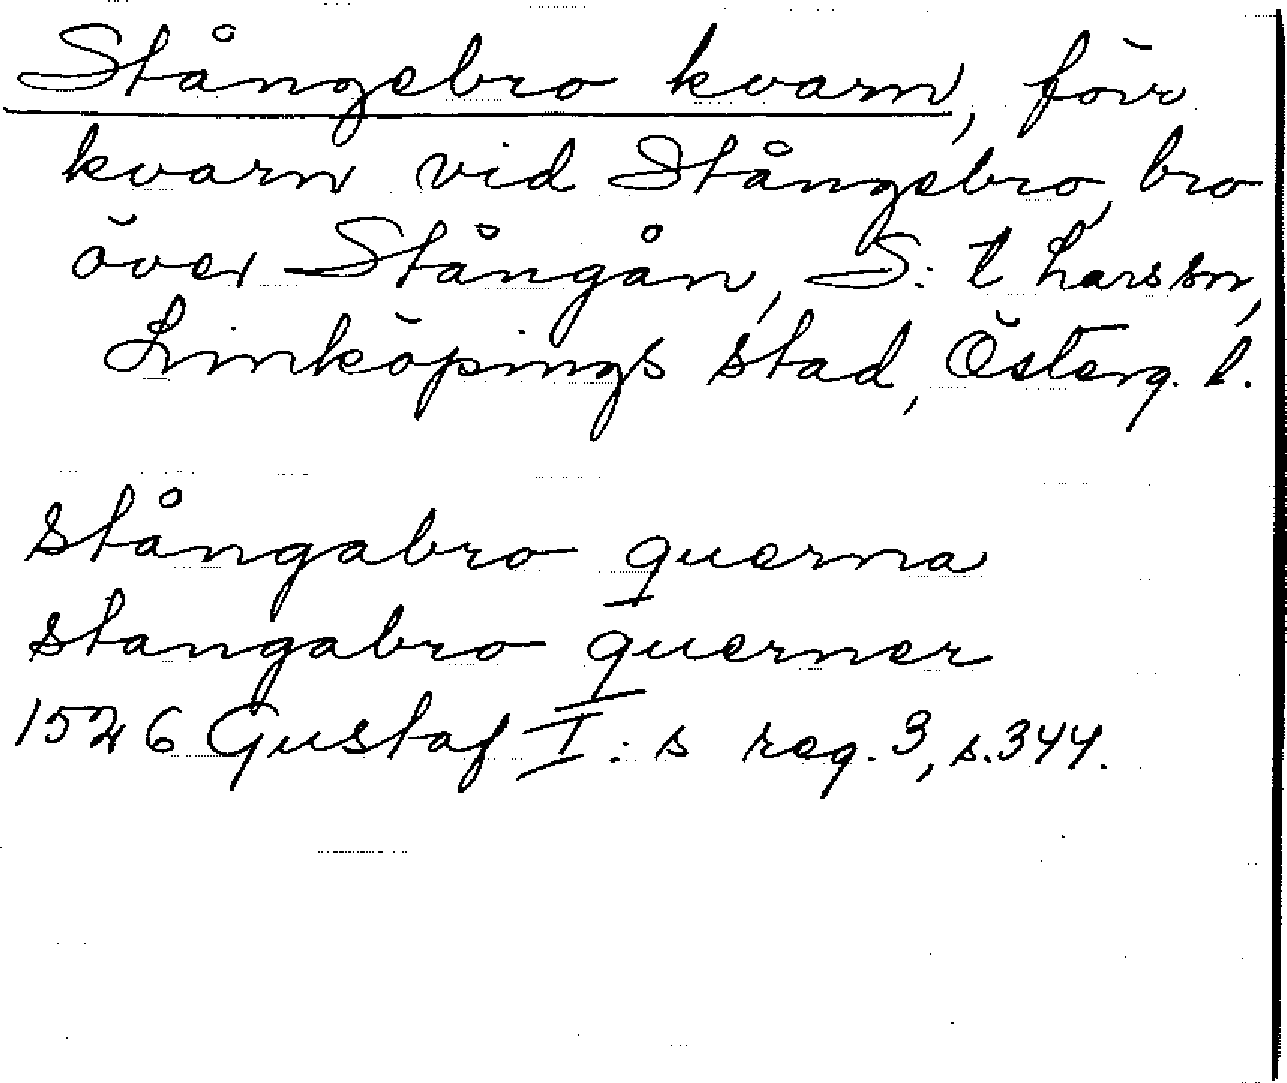 Stångebro kvarn, förr
kvarn vid Stångebro, bro
över Stångån, S:t Larss sn,
Linköpings stad, Österg. l.
stångabro querna
stangabro querner
1526 Gustaf I:s reg. 3, s. 344.